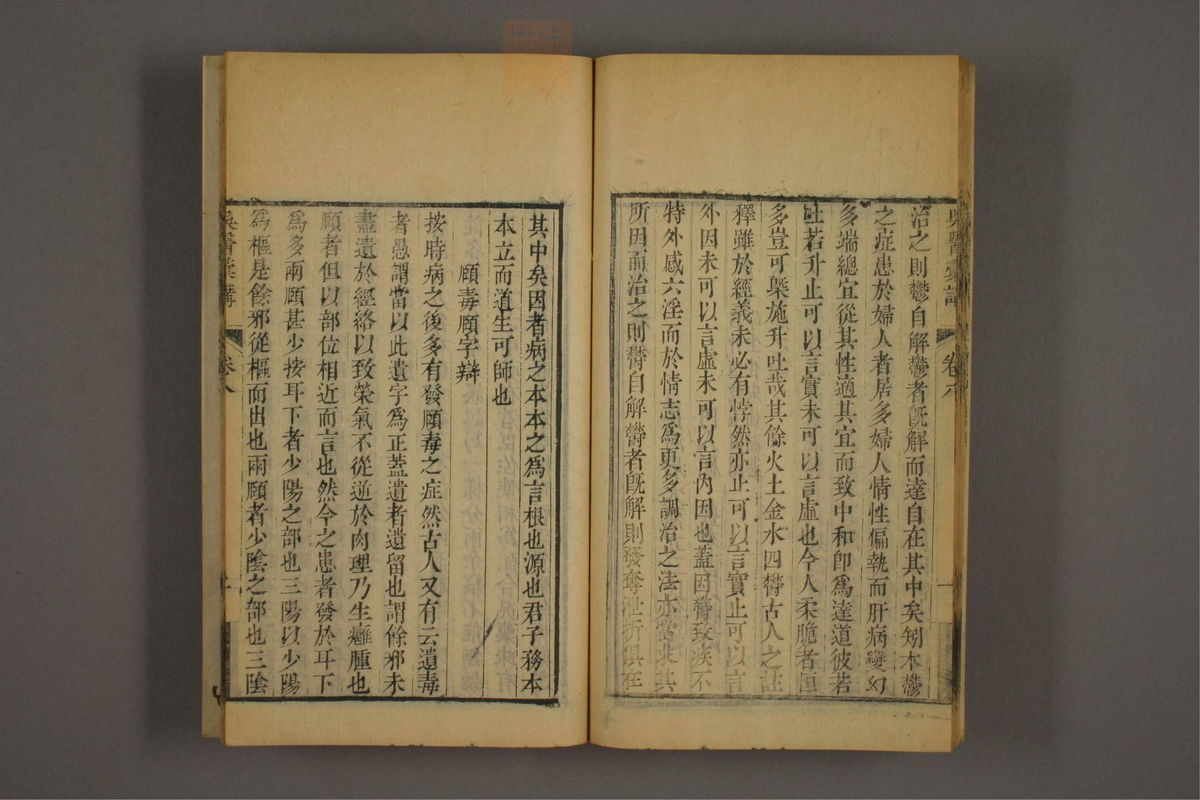 治之則鬱自解鬱者旣解而達自在其中矣矧木鬱
之症患於婦人者居多婦人情性偏執而肝病變幻
多端總宜從其性適其宜而致中和卽爲達道彼若
吐若升止可以言實未可以言虛也今人柔脆者恒
多豈可槩施升吐哉其餘火土金水四鬱古人之註
釋雖於經義未必有悖然亦止可以言實止可以言
外因未可以言虛未可以言內因也蓋因鬱致疾不
特外感六淫而於情志爲更多調治之法亦當求其
所因而治之則鬱自解鬱者旣解則發奪泄折俱在
其中矣因者病之本本之爲言根也源也君子務本
本立而道生可師也
頤毒頤字辯
按時病之後多有發頤毒之症然古人又有云遺毒
者愚謂當以此遺字爲正蓋遺者遺留也謂餘邪未
盡遺於經絡以致榮氣不從逆於肉理乃生癰腫也
頤者但以部位相近而言也然今之患者發於耳下
爲多兩頤甚少按耳下者少陽之部也三陽以少陽
爲樞是餘邪從樞而出也兩頤者少陰之部也三陰
吳醫彙講
卷八